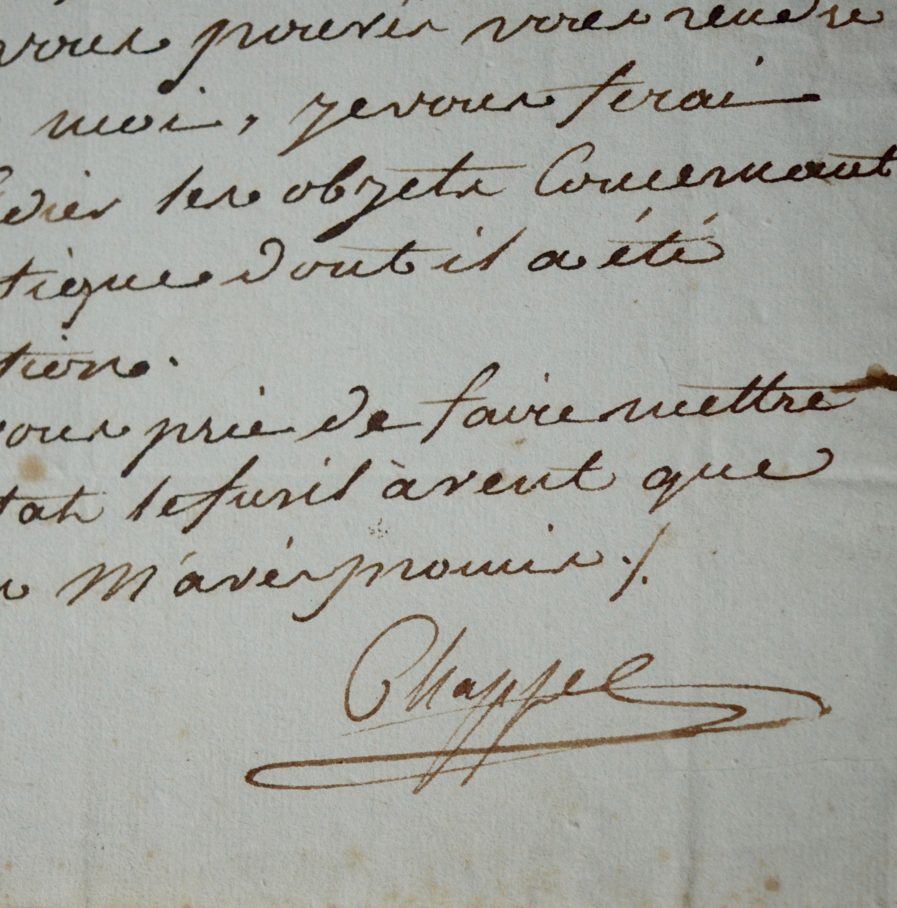 vous pouvés vous rendre
moi, je vous ferai
les objets Concernant
tique dont il a été
tion.
vous prie de faire mettre
tat le fusil à vent que
M'avés promis ./.
Chappe